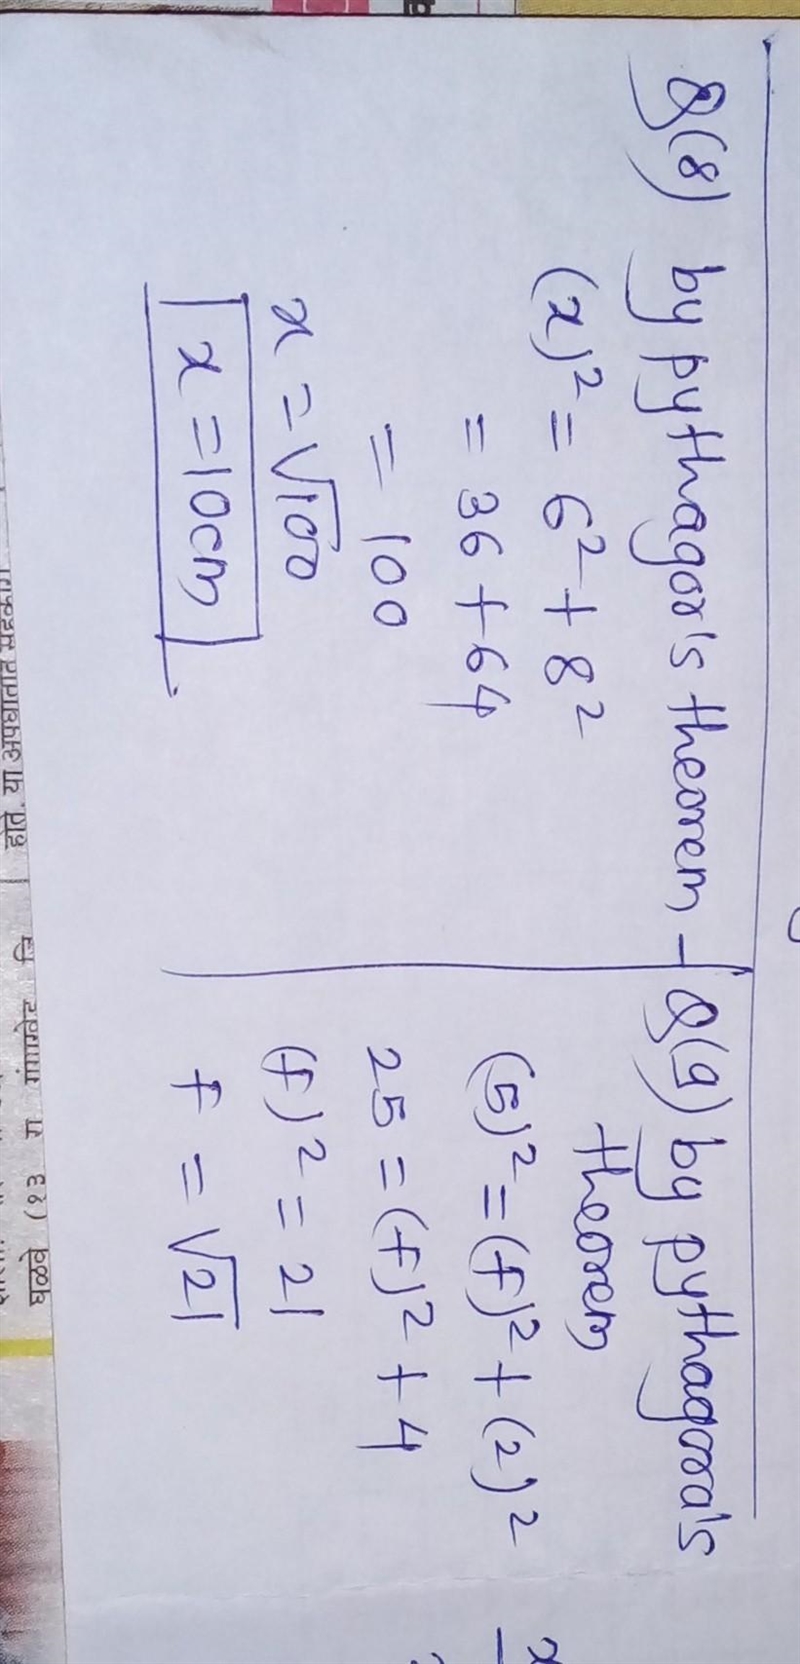 Q(8) by pythagor's theorem -
(x)² = 6² + 8²
= 36 + 64
= 100
x = √100
x = 10cm
Q(9) by pythagora's
theorem
(5)² = (f)² + (2)²
25 = (f)² + 4
(f)² = 21
f = √21
x
होते. या अपघातात